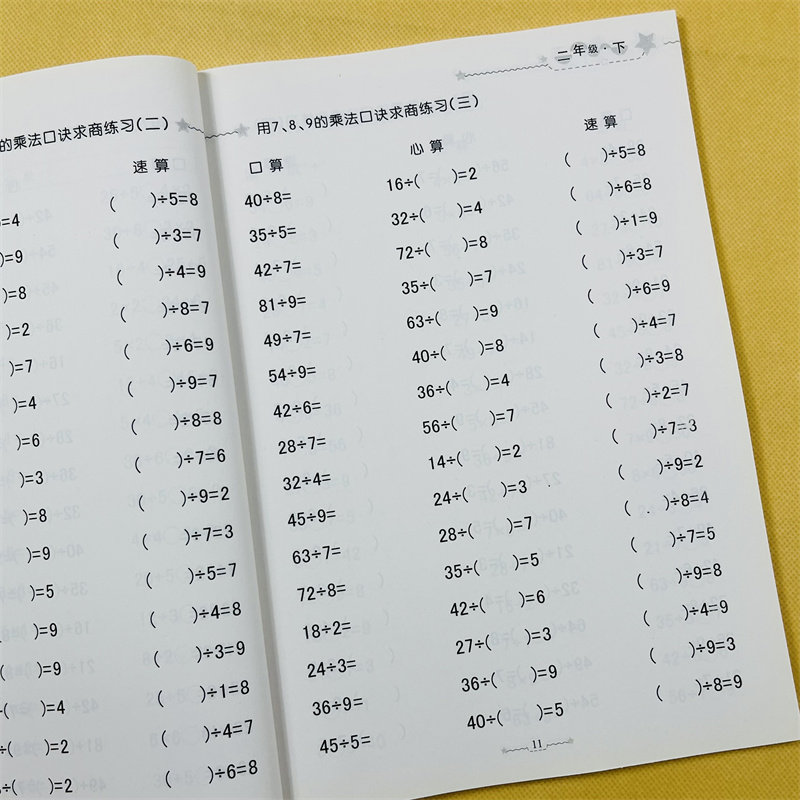 的乘法口诀求商练习(二)
速算
=4 ( )÷5=8
)=9 ( )÷3=7
)=8 ( )÷4=9
)=2 ( )÷8=7
)=7 ( )÷6=9
)=4 ( )÷9=7
)=6 ( )÷8=8
)=3 ( )÷7=6
)=8 ( )÷9=2
)=9 ( )÷7=3
)=5 ( )÷5=7
)=9 ( )÷4=8
)=9 ( )÷3=9
( )=4 ( )÷1=8
÷( )=2 ( )÷4=7
÷( )=2 ( )÷6=8
二年级·下
用7、8、9的乘法口诀求商练习(三)
口算 心算 速算
40÷8= 16÷( )=2 ( )÷5=8
35÷5= 32÷( )=4 ( )÷6=8
42÷7= 72÷( )=8 ( )÷1=9
81÷9= 35÷( )=7 ( )÷3=7
49÷7= 63÷( )=9 ( )÷6=9
54÷9= 40÷( )=8 ( )÷4=7
42÷6= 36÷( )=4 ( )÷3=8
28÷7= 56÷( )=7 ( )÷2=7
32÷4= 14÷( )=2 ( )÷7=3
45÷9= 24÷( )=3 ( )÷9=2
63÷7= 28÷( )=7 ( )÷8=4
72÷8= 35÷( )=5 ( )÷7=5
18÷2= 42÷( )=6 ( )÷9=8
24÷3= 27÷( )=3 ( )÷4=9
36÷9= 36÷( )=9 ( )÷9=3
45÷5= 40÷( )=5 ( )÷8=9
11